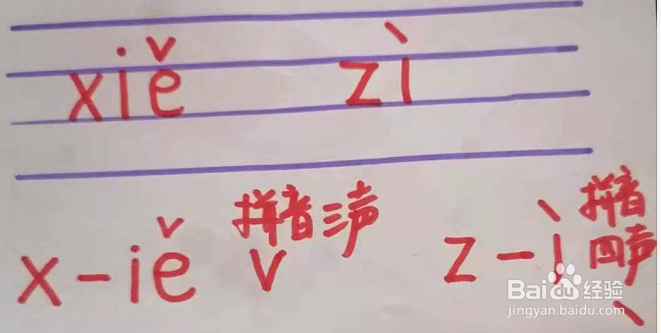 xiě zì
x-iě 拼音三声 ˇ z-ì 拼音四声 ˋ
Baidu经验
jingyan.baidu.com